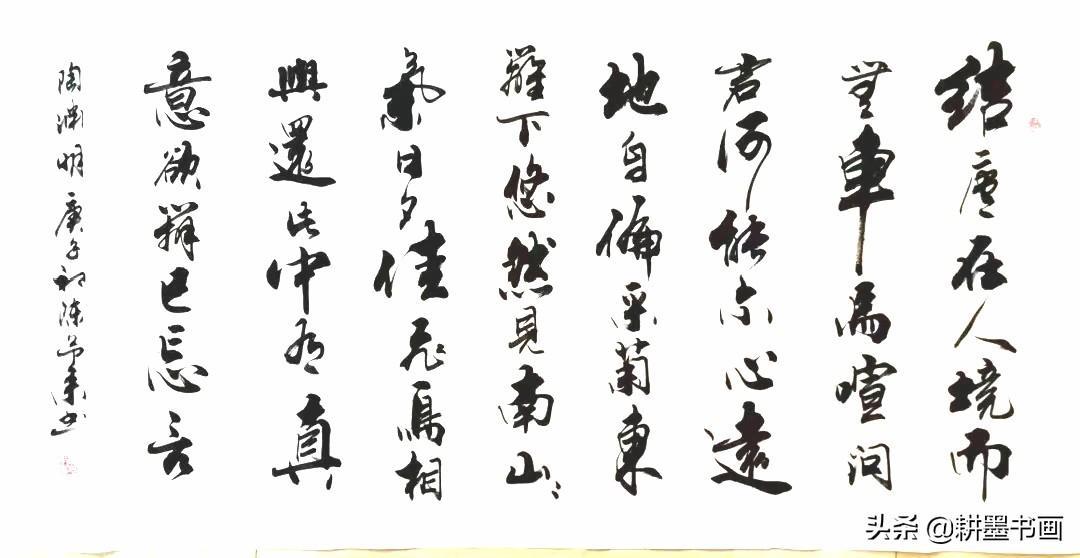 结廬在人境而
無車馬喧问
君何能尔心遠
地自偏采菊東
籬下悠然見南山〻
氣日夕佳飛鳥相
與還此中有真
意欲辨已忘言
陶淵明庚子初陳书
头条 @耕墨书画